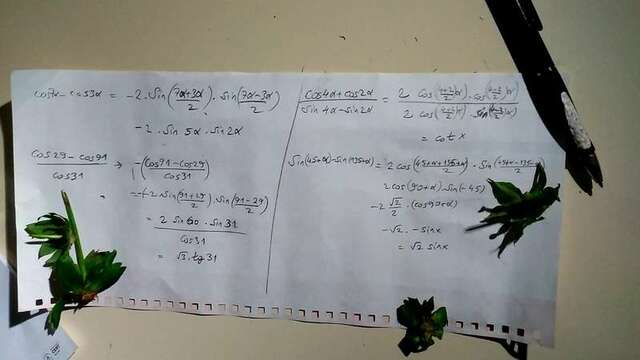 cos7α - cos3α = -2 · sin((7α+3α)/2) · sin((7α-3α)/2)
-2 · sin 5α · sin2α
(cos29 - cos91)/cos31 → -(cos91 - cos29)/(cos31)
= -(-2 sin((91+29)/2) sin((91-29)/2)
= (2 sin60 · sin31)/cos31
= √3 · tg 31
(cos4α + cos2α)/(sin4α - sin2α) = (2 cos((4+2)/2 α) · cos((4-2)/2 α))/(2 cos((4+2)/2 α) · sin((4-2)/2 α))
= cot x
sin(45+α) - sin(135+α) = 2 cos((45+α+135+α)/2) · sin
2 cos(90+α) · sin(-45)
-2 √2/2 · (cos90+α)
-√2 · -sinx
= √2 sinx